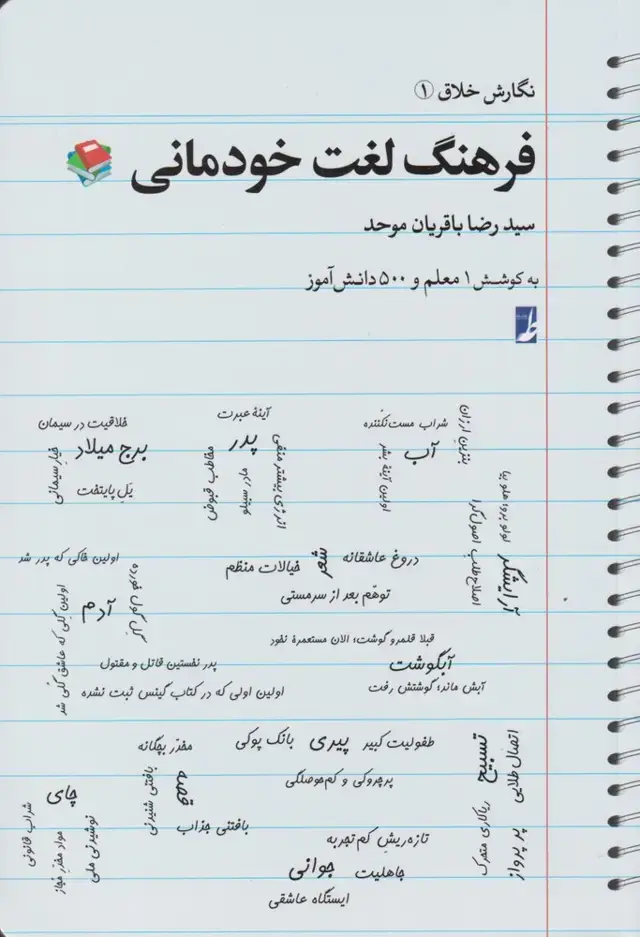 نگارش خلاق ①
فرهنگ لغت خودمانی
سید رضا باقریان موحد
به کوشش ۱ معلم و ۵۰۰ دانش‌آموز
آینهٔ عبرت
پدر
مخاطب قبوض
مادر سیبیلو
انرژی بیشتر منفی
شراب مست‌نکننده
آب
بنزین ارزان
اولین آینهٔ بشر
خلاقیت در سیمان
برج میلاد
خیار سیمانی
یَلِ پایتخت
لولو برو؛ هلو بیا
آرایشگر
اصلاح‌طلبِ اصول‌گرا
دروغ عاشقانه
شعر
خیالات منظم
توهّم بعد از سرمستی
اولین خاکی که پدر شد
آدم
گِل گول خورده
اولین گِلی که عاشق گُلی شد
پدر نخستین قاتل و مقتول
اولین اولی که در کتاب گینس ثبت نشده
قبلا قلمرو گوشت؛ الان مستعمرهٔ نخود
آبگوشت
آبش ماند؛ گوشتش رفت
طفولیت کبیر
پیری
بانک پوکی
پرچروکی و کم‌حوصلگی
مخدّر بچگانه
قصه
بافتنی شنیدنی
بافتنی جذاب
اتصال طلایی
تسبیح
ریاکاری متحرک
پر پرواز
چای
شراب قانونی
مواد مخدّر مجاز
نوشیدنی ملی
تازه‌ریشِ کم‌تجربه
جوانی
جاهلیت
ایستگاه عاشقی